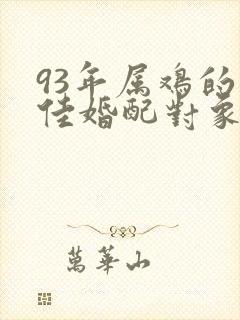 93年属鸡的
佳婚配對象
萬華山